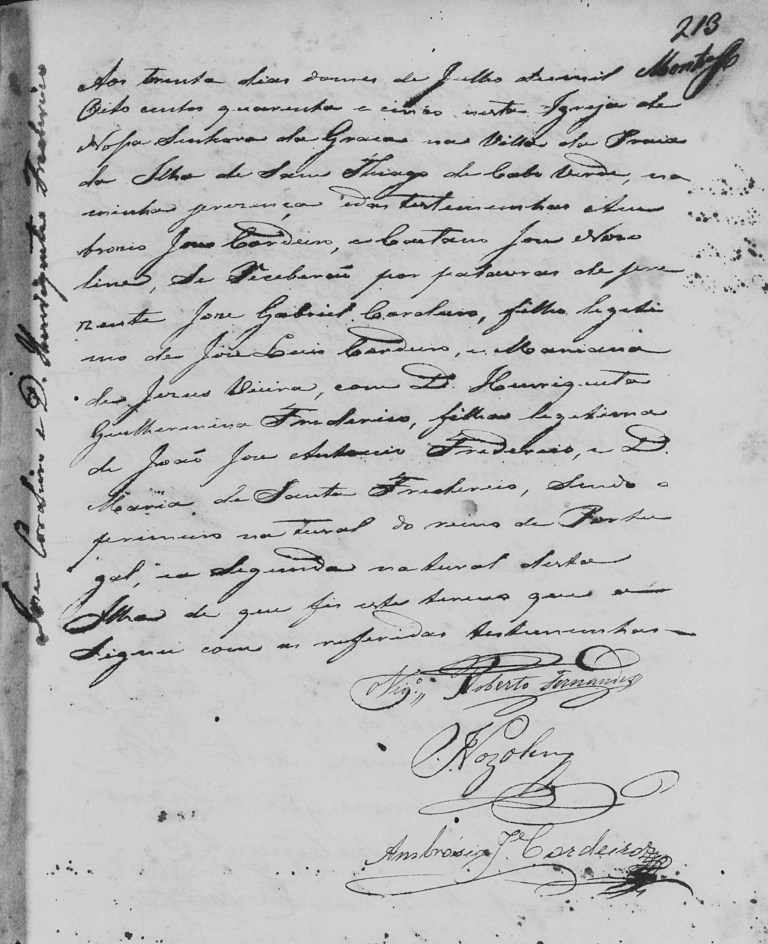 213
Aos trinta dias do mes de Julho de mil
Oito centos quarenta e cinco nesta Igreja de
Nossa Senhora da Graca na Villa da Praia
da Ilha de Sam Thiago de Cabo Verde, na
minha prezença, e das testemunhas Am
brozio Joze Cordeiro, e Caetano Joze Noso
line, se Receberão por palavras de pre
zente Joze Gabriel Cordeiro, filho legeti
mo de Joze Luis Cordeiro, e Marianna
de Jezus Vieira, com D. Henriqueta
Guilhermina Frederico, filha legetima
de João Joze Antonio Frederico, e D.
Maria de Sante Frederico, sendo o
primeiro natural do reino de Portu
gal, e a Segunda natural desta
Ilha de que fis este termo que a
Signei com as referidas testemunhas
Vig.º Roberto Fernandes
Nozolini
Ambrósio Je. Cordeiro
Joze Cordeiro e D. Henriqueta Frederico